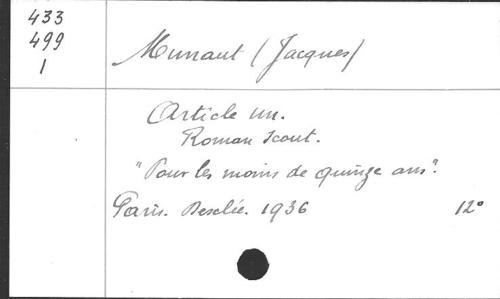 433
499
1
Munaut (Jacques)
Article un.
Roman Scout.
"Pour les moins de quinze ans".
Paris. Desclée. 1936 12°